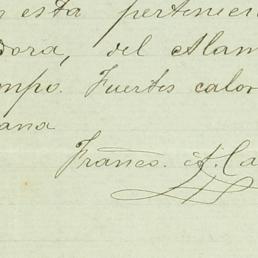 esta pertenecie
dora, del Alam
mpo. Fuertes calor
ana
Franco. A. Ca